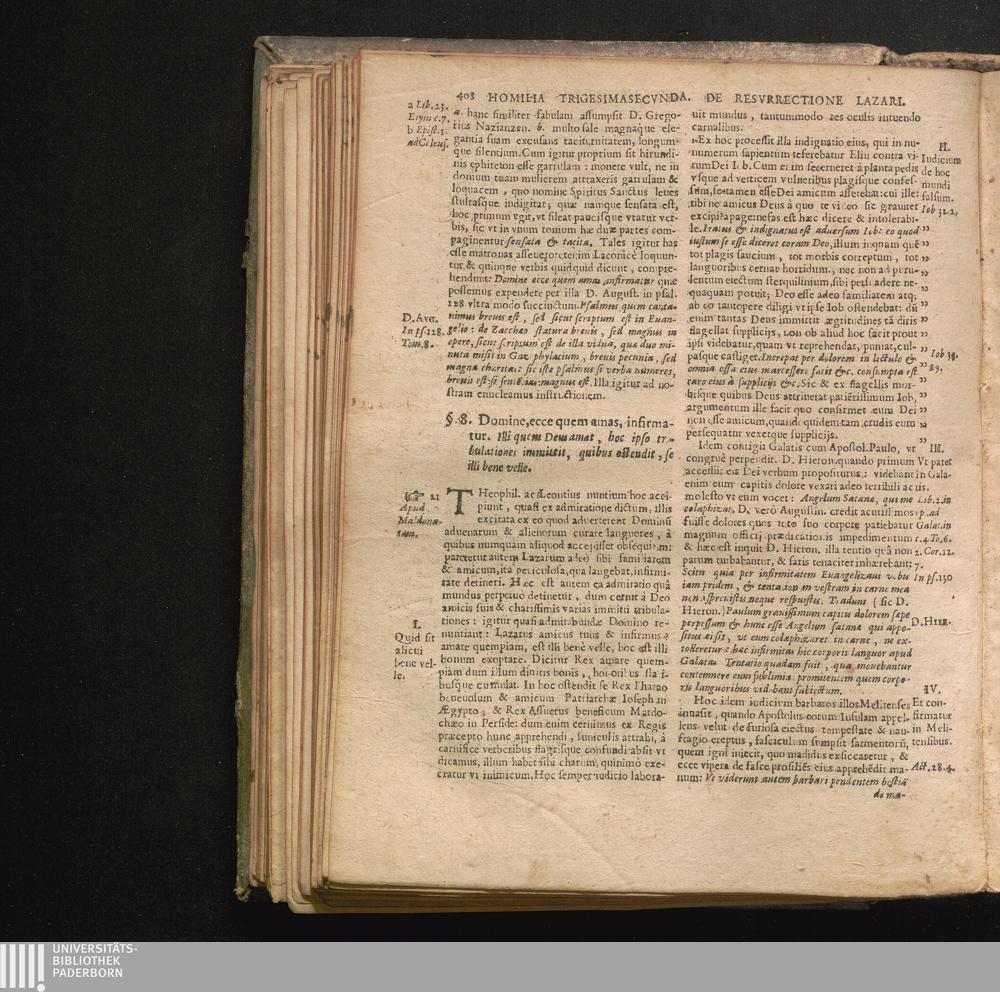 408 HOMILIA TRIGESIMASECVNDA. DE RESVRRECTIONE LAZARI.
a Lib. 23.
Etym c.7.
b Epist.1.
ad Celeus.
a. hanc similiter fabulam assumpsit D. Grego-
rius Nazianzen. b. multo sale magnaque ele-
gantia suam excusans taciturnitatem, longum-
que silentium. Cum igitur proprium sit hirundi-
nis ephiteton esse garrulam: monere vult, ne in
domum tuam mulierem attraxeris garrulam &
loquacem, quo nomine Spiritus Sanctus leues
stultasque indigitat; quæ namque sensata est,
hoc primum vgit, vt sileat paucisque vtatur ver-
bis, sic vt in vnum tomum hæ duæ partes com-
paginentur sensata & tacita. Tales igitur has
esse matronas asseuero: etenim Laconicè loquun-
tur, & quinque verbis quidquid dicunt, compre-
hendunt: Domine ecce quem amas infirmatur quæ
possemus expendere per illa D. August. in psal.
128. vltra modo succinctum. Psalmus quem canta-
D. Avg.
In ps. 128.
Tom. 8.
uimus breuis est, sed sicut scriptum est in Euan-
gelio: de Zacchæo statura breuis, sed magnus in
opere, sicut scriptum est de illa vidua, qua duo mi-
nuta misit in Gazophylacium, breuis pecunia, sed
magna charitas: sic iste psalmus si verba numeres,
breuis est: si sententias: magnus est. Illa igitur ad no-
stram enucleamus instructionem.
§. 8. Domine, ecce quem amas, infirma-
tur. Illi quem Deus amat, hoc ipso tri-
bulationes immittit, quibus ostendit, se
illi bene velle.
21
Apud
Maldona-
tum.
THeophil. ac Leontius nuntium hoc acci-
piunt, quasi ex admiratione dictum, illis
excitata ex eo quod aduerterent Dominū
aduenarum & alienorum curare languores, à
quibus numquam aliquod accepisset obsequium:
pateretur autem Lazarum adeò sibi familiarem
& amicum, ita periculosa, qua langebat, infirmi-
tate detineri. Hæc est autem ea admiratio quâ
mundus perpetuò detinetur, dum cernit à Deo
amicis suis & charissimis varias immitti tribula-
I.
Quid sit
alicui
bene vel-
le.
tiones: igitur quasi admirabundæ Domino re-
nuntiant: Lazarus amicus tuus & infirmus?
amare quempiam, est illi benè velle, hoc est illi
bonum exoptare. Dicitur Rex amare quem-
piam dum illum diuitiis bonis, honoribus sta-
busque cumulat. In hoc ostendit se Rex Pharao
beneuolum & amicum Patriarchæ Ioseph in
Ægypto; & Rex Assuerus beneficum Mardo-
chæo in Perside: dum enim cernimus ex Regis
præcepto hunc apprehendi, funiculis attrahi, à
carnifice verberibus flagrisque confundi absit vt
dicamus, illum habet sibi charum, quinimò exe-
cratur vt inimicum. Hoc semper iudicio labora-
uit mundus, tantummodo res oculis intuendo
carnalibus.
II.
Iudicium
de hoc
mundi
falsum.
Iob 32.2.
Ex hoc processit illa indignatio eius, qui in nu-
numerum sapientum referebatur Eliu contra vi-
rum Dei Iob. Cum enim secerneret à planta pedis
vsque ad verticem vulneribus plagisque confes-
sum, se tamen esse Dei amicum asserebat: cui ille:
tibi ne amicus Deus à quo te video sic grauiter
excipi? apage: nefas est hæc dicere & intolerabi-
le. Iratus & indignatus est aduersum Iob: eo quod
iustum se esse diceret coram Deo, illum inquam quē
tot plagis saucium, tot morbis correptum, tot
languoribus cernat horridum, nec non ad puru-
lentum eiectum sterquilinium, sibi persuadere ne-
quaquam potuit; Deo esse adeo familiarem atq;
ab eo tantopere diligi vti se Iob ostendebat: dū
enim tantas Deus immittit ægritudines tā diris
flagellat supplicijs, non ob aliud hoc facit prout
ipsi videbatur, quam vt reprehendat, puniat, cul-
pasque castiget. Increpat per dolorem in lectulo &
Iob 33.
19.
omnia ossa eius marcessere facit &c. consumpta est
caro eius à supplicijs &c. Sic & ex flagellis mor-
bisque quibus Deus attriuerat patiētissimum Iob,
argumentum ille facit quo confirmet eum Dei
non esse amicum, quandoquidem tam crudis eum
persequatur vexetque supplicijs.
III.
Vt patet
in Gala-
Idem contigit Galatis cum Apostol. Paulo, vt
congruè perpendit. D. Hieron. quando primum
accessit eis Dei verbum propositurus: videbant
enim eum capitis dolore vexari adeo terribili ac iis.
molesto vt eum vocet: Angelum Satanæ, qui me
colaphizat. D. verò Augustin. credit acutissimos
fuisse dolores quos toto suo corpore patiebatur
magnum officij prædicationis impedimentum
& hæc est inquit D. Hieron. illa tentio quâ non
parum turbabantur, & satis tenaciter inhærebant:
Lib. 2. in
ep. ad
Galat. in
c. 4. To. 6.
2. Cor. 12.
7.
In ps. 130
Scitis quia per infirmitatem Euangelizaui vobis
iam pridem, & tentationem vestram in carne mea
non spreuistis neque respuistis. Tradunt (sic D.
Hieron.) Paulum grauissimum capitis dolorem sæpe
D. Hier.
perpessum & hunc esse Angelum satanæ qui appo-
situs ei sit, vt eum colaphizaret in carne, ne ex-
tolleretur: hæc infirmitas hic corporis languor apud
Galatas Tentatio quædam fuit, qua mouebantur
contemnere eum sublimia promittentem quem corpo-
ris languoribus videbant subiectum.
IV.
Et con-
firmatur
in Meli-
tensibus.
Hoc idem iudicium barbaros illos Melitenses
inuasit, quando Apostolus eorum Insulam appel-
lens velut de furiosa eiectus tempestate & nau-
fragio ereptus, fasciculum sumpsit sarmentorū,
quem igni iniecit, quo madidus exsiccaretur, &
ecce vipera de fasce prosiliēs eius apprehēdit ma-
Act. 28.4.
num: Vt viderunt autem barbari pendentem bestiā
de ma-
UNIVERSITÄTS-
BIBLIOTHEK
PADERBORN